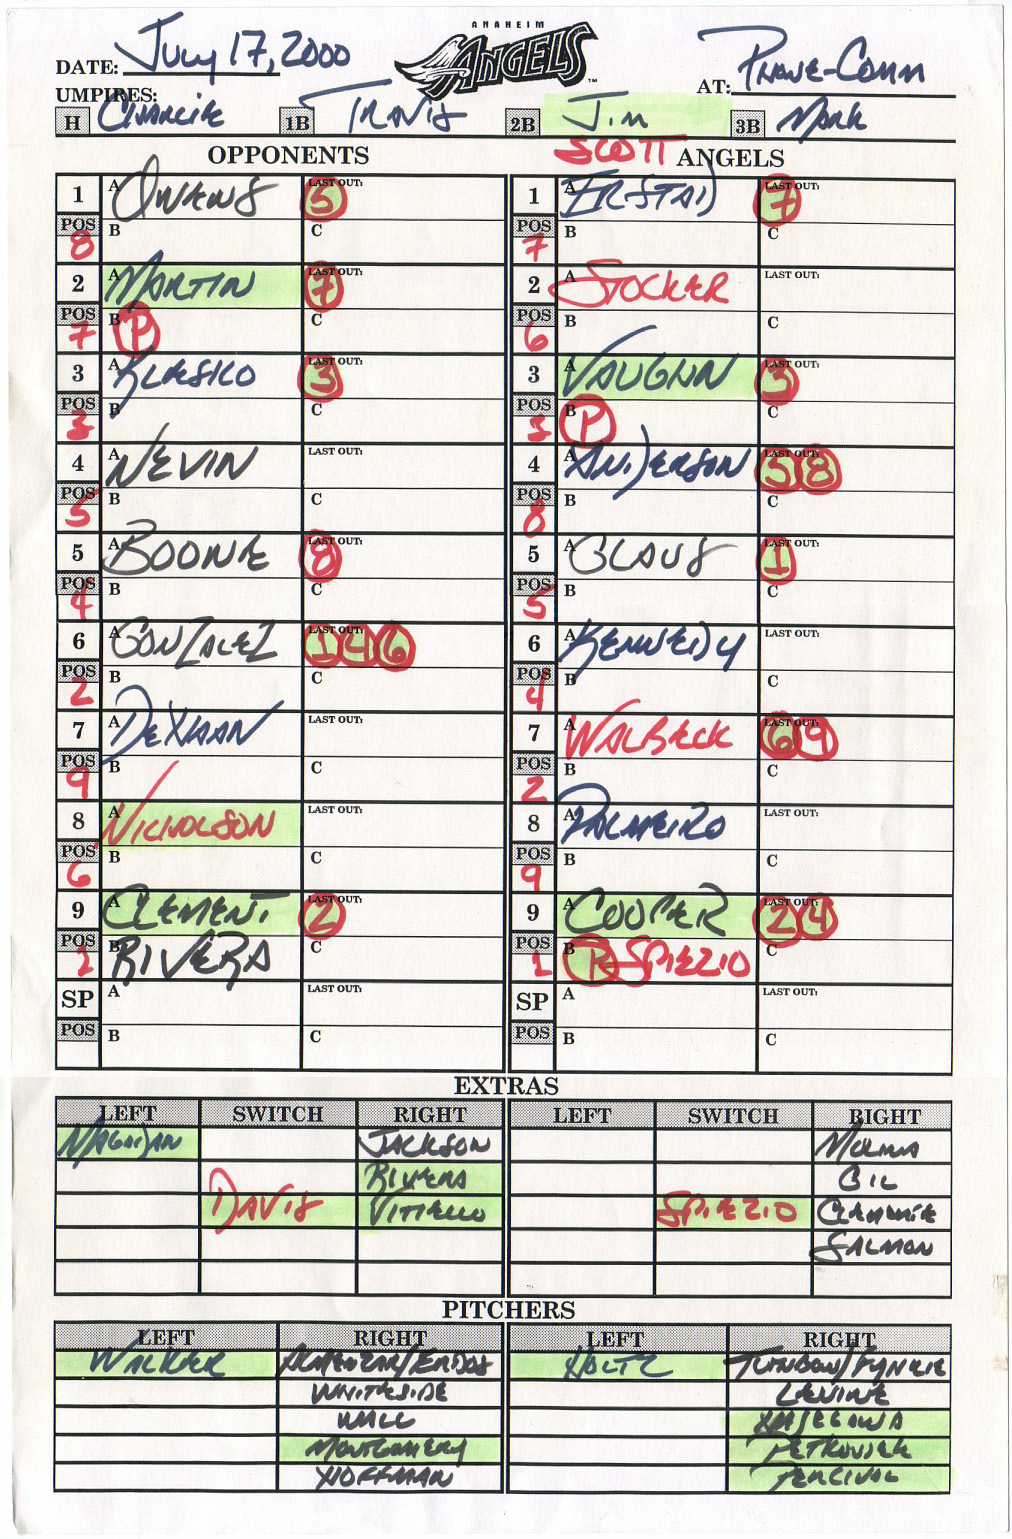 ANAHEIM
ANGELS
DATE: July 17, 2000
AT:
UMPIRES:
H Charlie 1B Travis 2B Jim 3B Mark
SCOTT
OPPONENTS ANGELS
1 A OWENS LAST OUT: 5 1 A ERSTAD LAST OUT: 7
POS 8 B C POS 7 B C
2 A MARTIN LAST OUT: 7 2 A STOCKER LAST OUT:
POS 7 B P C POS 6 B C
3 A KLESKO LAST OUT: 3 3 A VAUGHN LAST OUT: 3
POS 3 B C POS 3 B P C
4 A NEVIN LAST OUT: 4 A ANDERSON LAST OUT: 5 8
POS 5 B C POS 8 B C
5 A BOONE LAST OUT: 8 5 A GLAUS LAST OUT: 1
POS 4 B C POS 5 B C
6 A GONZALEZ LAST OUT: 1 4 6 6 A KENNEDY LAST OUT:
POS 2 B C POS 4 B C
7 A DEHAAN LAST OUT: 7 A WALBECK LAST OUT: 6 9
POS 9 B C POS 2 B C
8 A NICHOLSON LAST OUT: 8 A PALMEIRO LAST OUT:
POS 6 B C POS 9 B C
9 A CLEMENT LAST OUT: 2 9 A COOPER LAST OUT: 2 4
POS 1 B RIVERA C POS 1 B R SPIEZIO C
SP A LAST OUT: SP A LAST OUT:
POS B C POS B C
EXTRAS
LEFT SWITCH RIGHT LEFT SWITCH RIGHT
MAGADAN JACKSON MOLINA
RIVERA GIL
DAVIS VITIELLO SPIEZIO CLEMENTE
SALMON
PITCHERS
LEFT RIGHT LEFT RIGHT
WALKER ALMANZAR/ERDOS HOLTZ TURNBOW/FYHRIE
WHITESIDE LEVINE
WALL HASEGAWA
MONTGOMERY PETKOVSEK
HOFFMAN PERCIVAL